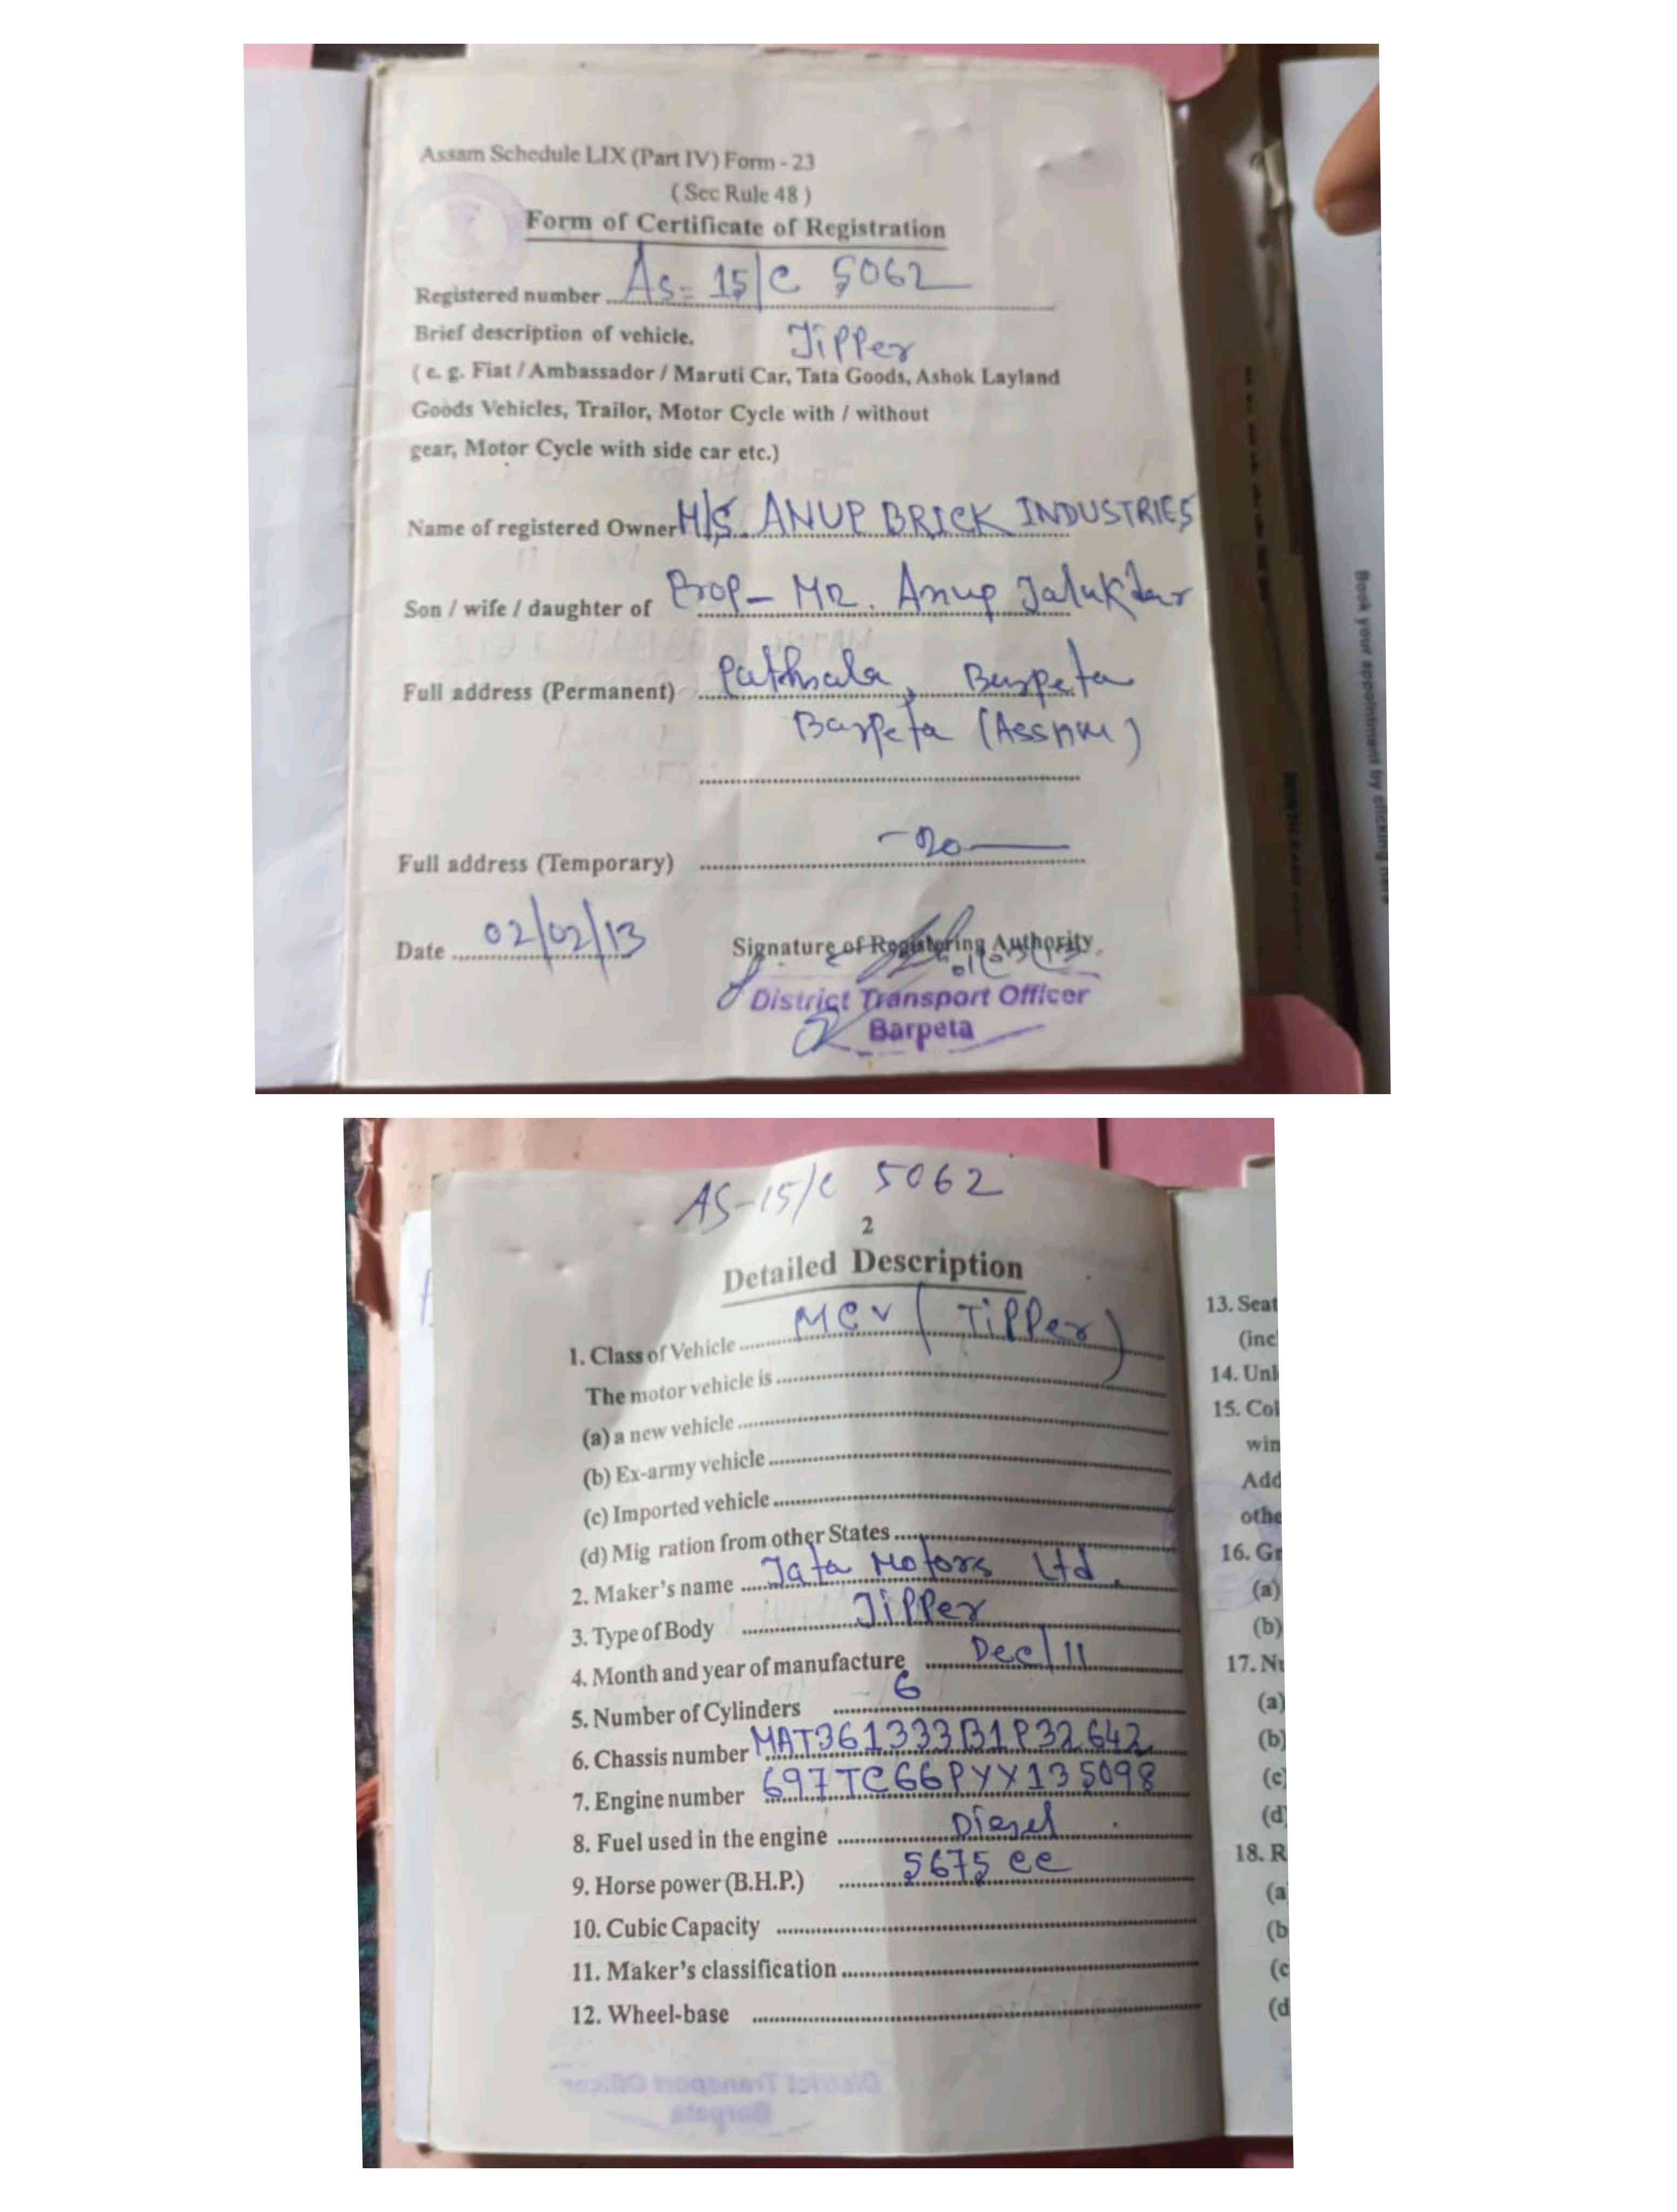 Assam Schedule LIX (Part IV) Form - 23
( Sec Rule 48 )
Form of Certificate of Registration
Registered number As= 15/C 5062
Brief description of vehicle. Tipper
( e. g. Fiat / Ambassador / Maruti Car, Tata Goods, Ashok Layland
Goods Vehicles, Trailor, Motor Cycle with / without
gear, Motor Cycle with side car etc.)
Name of registered Owner M/S. ANUP BRICK INDUSTRIES
Son / wife / daughter of Prop- MR. Anup Talukdar
Full address (Permanent) Pathsala, Barpeta
Barpeta (Assam)
Full address (Temporary)
Date 02/02/13
Signature of Registering Authority
District Transport Officer
Barpeta
Book your appointment by clicking here
AS-15/C 5062
2
Detailed Description
1. Class of Vehicle MCV (Tipper)
The motor vehicle is
(a) a new vehicle
(b) Ex-army vehicle
(c) Imported vehicle
(d) Mig ration from other States
2. Maker's name Tata Motors Ltd.
3. Type of Body Tipper
4. Month and year of manufacture Dec/11
5. Number of Cylinders 6
6. Chassis number MAT361333B1P32642
7. Engine number 697TC66PYX135098
8. Fuel used in the engine Diesel
9. Horse power (B.H.P.) 5675 cc
10. Cubic Capacity
11. Maker's classification
12. Wheel-base
13. Seat
(inc
14. Unl
15. Col
win
Add
othe
16. Gr
(a)
(b)
17. Nu
(a)
(b)
(c)
(d)
18. R
(a
(b
(c
(d
District Transport Officer
Barpeta